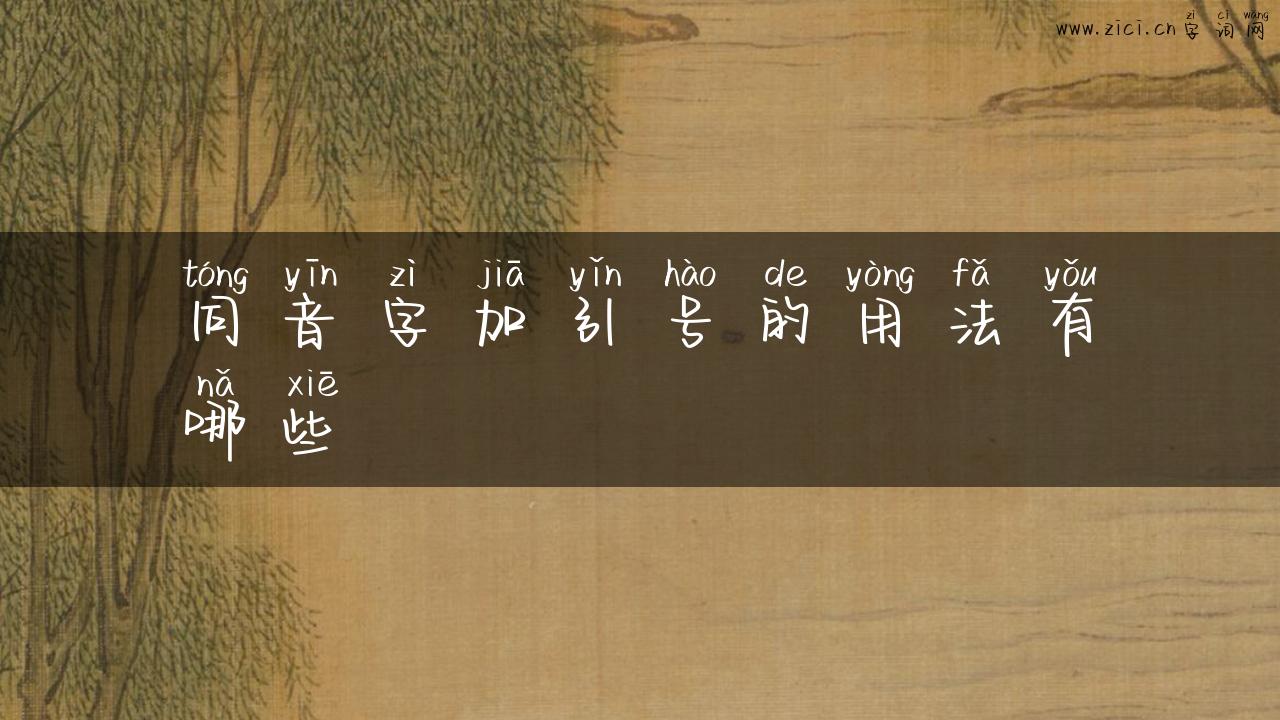 zì cí wǎng
www.zici.cn 字词网
tóng yīn zì jiā yǐn hào de yòng fǎ yǒu
同音字加引号的用法有
nǎ xiē
哪些